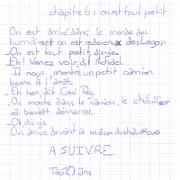 chapitre 6 : on est tout petit
On est arrivé dans le monde des
humains et on est redevenu des Legos.
- On est tout petit, dis-je.
- Eh ! Venez voir, dit Michel.
Il nous montre un petit camion
benne à l'arrêt.
- Eh bien, dit Cool Roby.
- On monte dans le camion, le chauffeur
va bientôt démarrer.
- Ok dis-je
On arrive devant la maison du chauffeur
A SUIVRE
10 ans